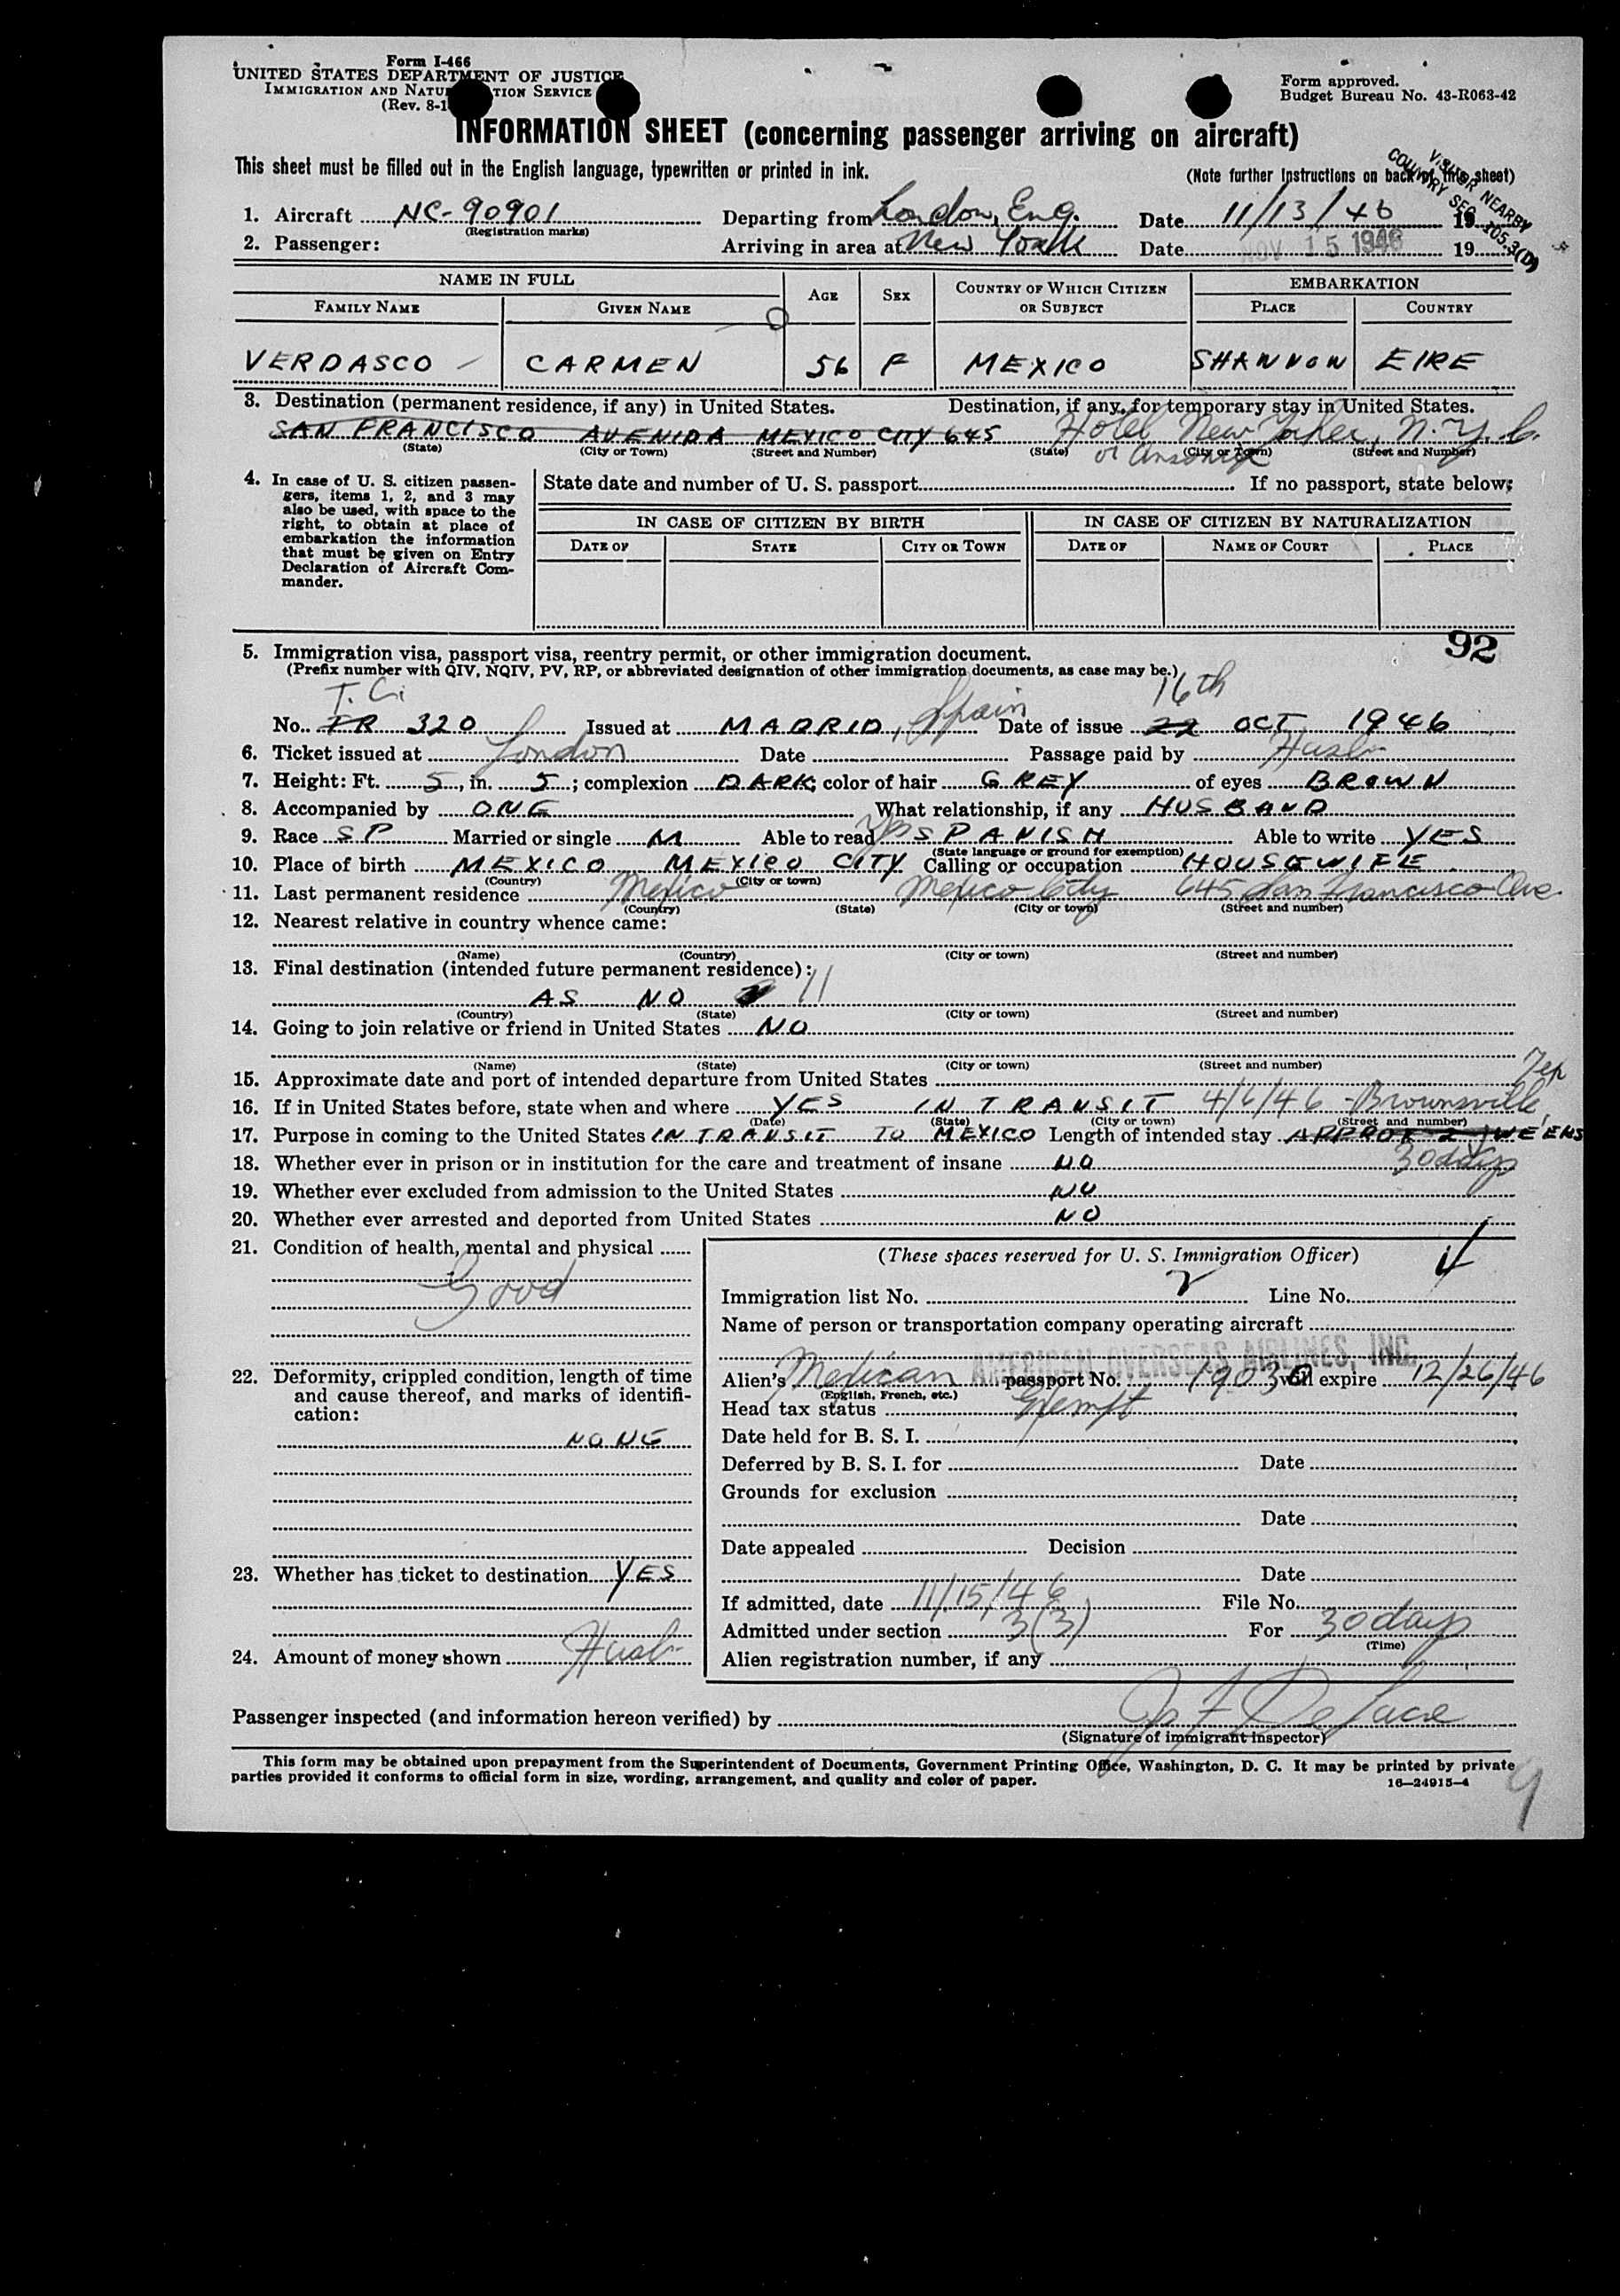 Form I-466
UNITED STATES DEPARTMENT OF JUSTICE
IMMIGRATION AND NATU TION SERVICE
(Rev. 8-1
Form approved.
Budget Bureau No. 43-R063-42
INFORMATION SHEET (concerning passenger arriving on aircraft)
This sheet must be filled out in the English language, typewritten or printed in ink.
(Note further instructions on back of this sheet)
VISITOR NEARBY
COUNTRY SEC. 105.3(D)
1. Aircraft NC-90901 Departing from London, Eng. Date 11/13/46 19
(Registration marks)
2. Passenger: Arriving in area at New York Date NOV 15 1946 19
NAME IN FULL AGE SEX COUNTRY OF WHICH CITIZEN OR SUBJECT EMBARKATION
FAMILY NAME GIVEN NAME PLACE COUNTRY
VERDASCO CARMEN 56 F MEXICO SHANNON EIRE
3. Destination (permanent residence, if any) in United States. Destination, if any, for temporary stay in United States.
SAN FRANCISCO AVENIDA MEXICO CITY 645 Hotel New Yorker, N.Y.C.
(State) (City or Town) (Street and Number) (State) (City or Town) (Street and Number)
or Ansonia
4. In case of U. S. citizen passengers, items 1, 2, and 3 may also be used, with space to the right, to obtain at place of embarkation the information that must be given on Entry Declaration of Aircraft Commander.
State date and number of U. S. passport If no passport, state below:
IN CASE OF CITIZEN BY BIRTH IN CASE OF CITIZEN BY NATURALIZATION
DATE OF STATE CITY OR TOWN DATE OF NAME OF COURT PLACE
92
5. Immigration visa, passport visa, reentry permit, or other immigration document.
(Prefix number with QIV, NQIV, PV, RP, or abbreviated designation of other immigration documents, as case may be.)
T.C. 16th
No. TR 320 Issued at MADRID, Spain Date of issue 22 OCT 1946
6. Ticket issued at London Date Passage paid by Husb
7. Height: Ft. 5, in. 5; complexion DARK; color of hair GREY of eyes BROWN
8. Accompanied by ONE What relationship, if any HUSBAND
9. Race SP Married or single M Able to read Yes SPANISH Able to write YES
(State language or ground for exemption)
10. Place of birth MEXICO MEXICO CITY Calling or occupation HOUSEWIFE
(Country) (City or town)
11. Last permanent residence Mexico Mexico City 645 San Francisco Ave.
(Country) (State) (City or town) (Street and number)
12. Nearest relative in country whence came:
(Name) (Country) (City or town) (Street and number)
13. Final destination (intended future permanent residence):
AS NO 11
(Country) (State) (City or town) (Street and number)
14. Going to join relative or friend in United States NO
(Name) (State) (City or town) (Street and number)
15. Approximate date and port of intended departure from United States
16. If in United States before, state when and where YES IN TRANSIT 4/6/46 - Brownsville, Tex
(Date) (State) (City or town) (Street and number)
17. Purpose in coming to the United States IN TRANSIT TO MEXICO Length of intended stay APPROX 2 WEEKS
30 days
18. Whether ever in prison or in institution for the care and treatment of insane NO
19. Whether ever excluded from admission to the United States NO
20. Whether ever arrested and deported from United States NO
21. Condition of health, mental and physical
Good
22. Deformity, crippled condition, length of time and cause thereof, and marks of identification:
NONE
23. Whether has ticket to destination YES
24. Amount of money shown Husb
(These spaces reserved for U. S. Immigration Officer)
Immigration list No. 2 Line No. 4
Name of person or transportation company operating aircraft
AMERICAN OVERSEAS AIRLINES, INC.
Alien's Mexican passport No. 19030 will expire 12/26/46
(English, French, etc.)
Head tax status Exempt
Date held for B. S. I.
Deferred by B. S. I. for Date
Grounds for exclusion
Date
Date appealed Decision
Date
If admitted, date 11/15/46 File No.
Admitted under section 3(3) For 30 days
(Time)
Alien registration number, if any
Passenger inspected (and information hereon verified) by
(Signature of immigrant inspector)
This form may be obtained upon prepayment from the Superintendent of Documents, Government Printing Office, Washington, D. C. It may be printed by private
parties provided it conforms to official form in size, wording, arrangement, and quality and color of paper. 16—24915-4
9